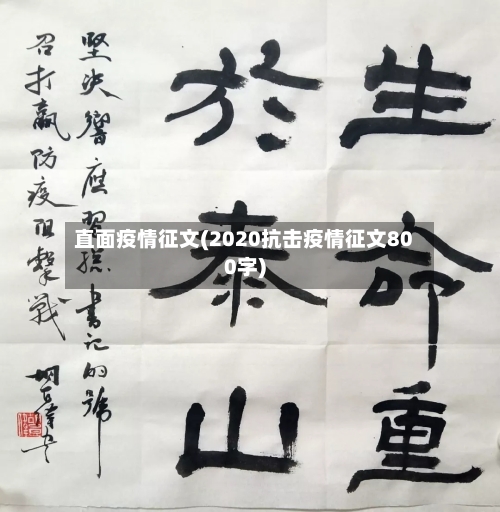 生命重
於泰山
堅决響應習總書记的號
召打赢防疫阻擊戰
直面疫情征文(2020抗击疫情征文80
0字)